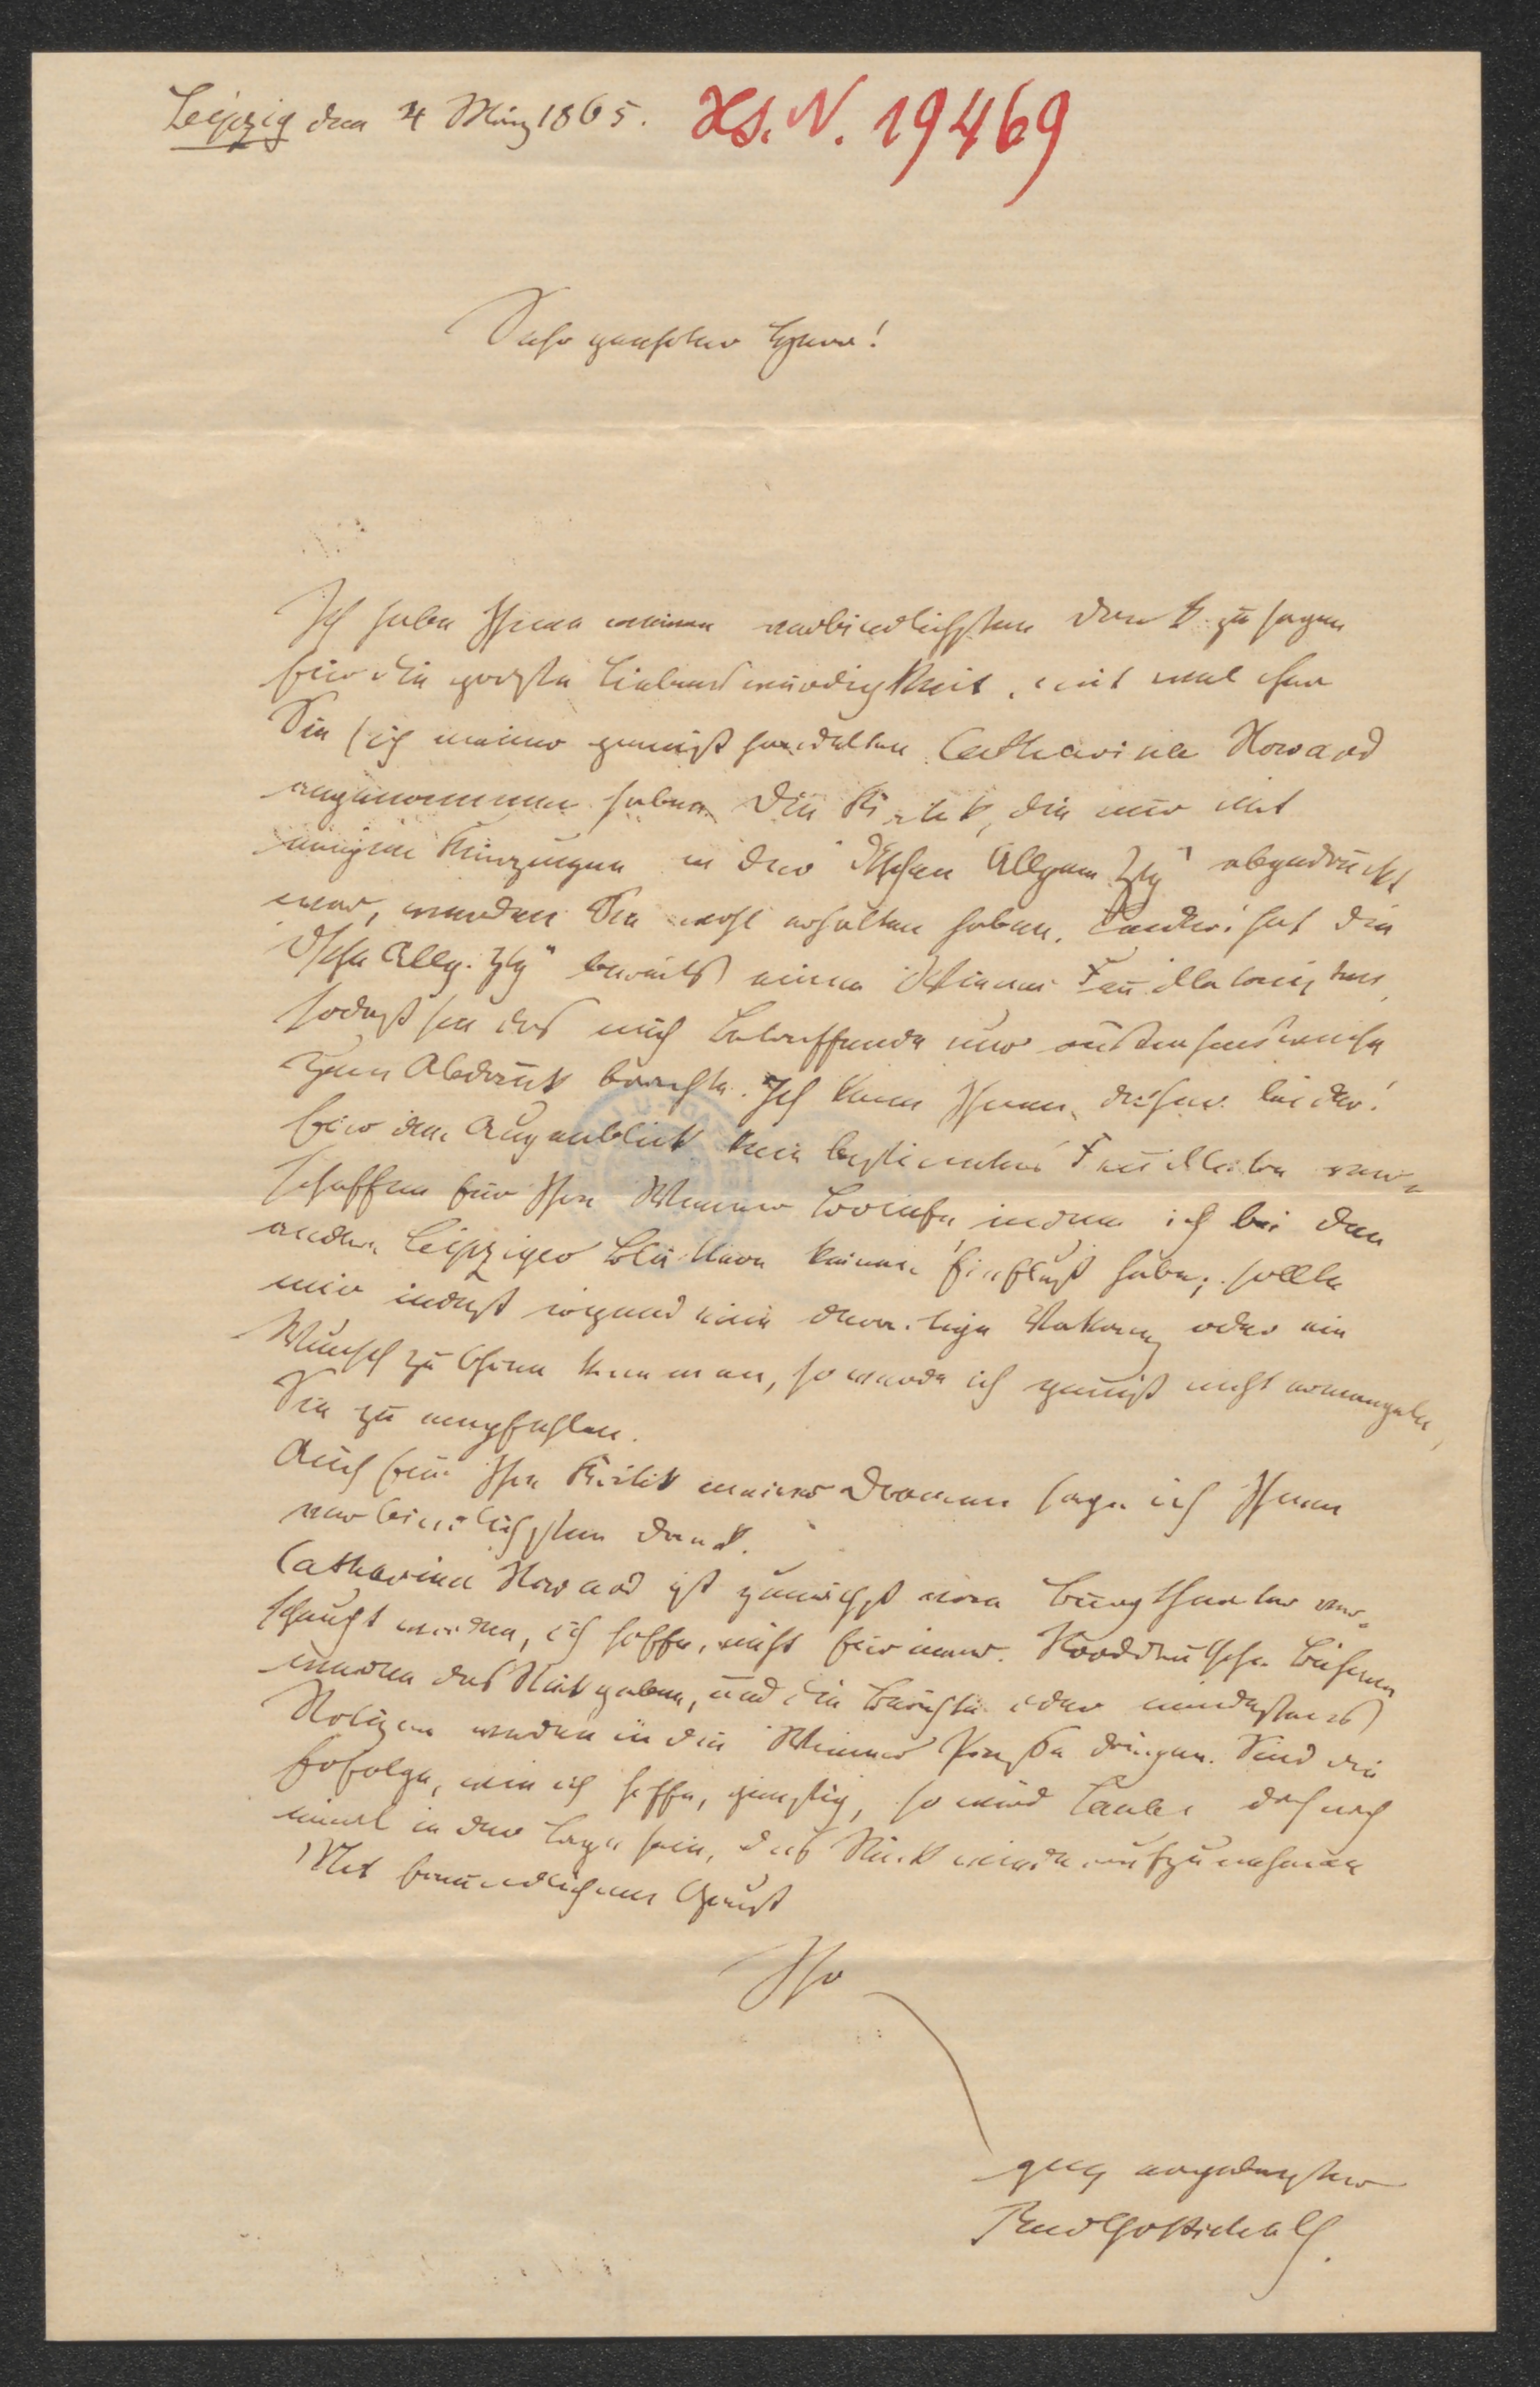 Leipzig den 4 März 1865. Hs. N. 19469
Sehr geehrter Herr!
Ich habe Ihnen meinen verbindlichsten Dank zu sagen
für die große Liebenswürdigkeit, mit welcher
Sie sich meiner gemißhandelten Catharina Howard
angenommen haben. Die Kritik, die nur mit
einigen Kürzungen in der "Dtschen Allgem. Ztg" abgedruckt
war, werden Sie wohl erhalten haben. Leider hat die
Dtsche Allg. Ztg" bereits einen Wiener Feuilletonisten,
sodaß sie das mich Betreffende nur
zum Abdruck brachte. Ich kann Ihnen daher leider
für den Augenblick kein bestimmtes Feuilleton ver-
schaffen für Ihre Wiener Briefe, indem ich bei den
andern Leipziger Blättern keinen Einfluß habe; sollte
mir indeß irgend eine derartige Vakanz oder ein
Wunsch zu Ohren kommen, so werde ich gewiß nicht ermangeln,
Sie zu empfehlen.
Auch für Ihre Kritik meiner Dramen sage ich Ihnen
verbindlichsten Dank.
Catharina Howard ist zunächst vom Burgtheater ver-
scheucht worden, ich hoffe, nicht für immer. Norddeutsche Bühnen
werden das Stück geben, und die Berichte oder mindestens
Notizen werden in die Wiener Presse dringen. Sind die
Erfolge, wie ich hoffe, günstig, so wird Laube doch noch
einmal in der Lage sein, das Stück wieder aufzunehmen
Mit freundlichem Gruß
Ihr
ganz ergebenster
Rud Gottschall.